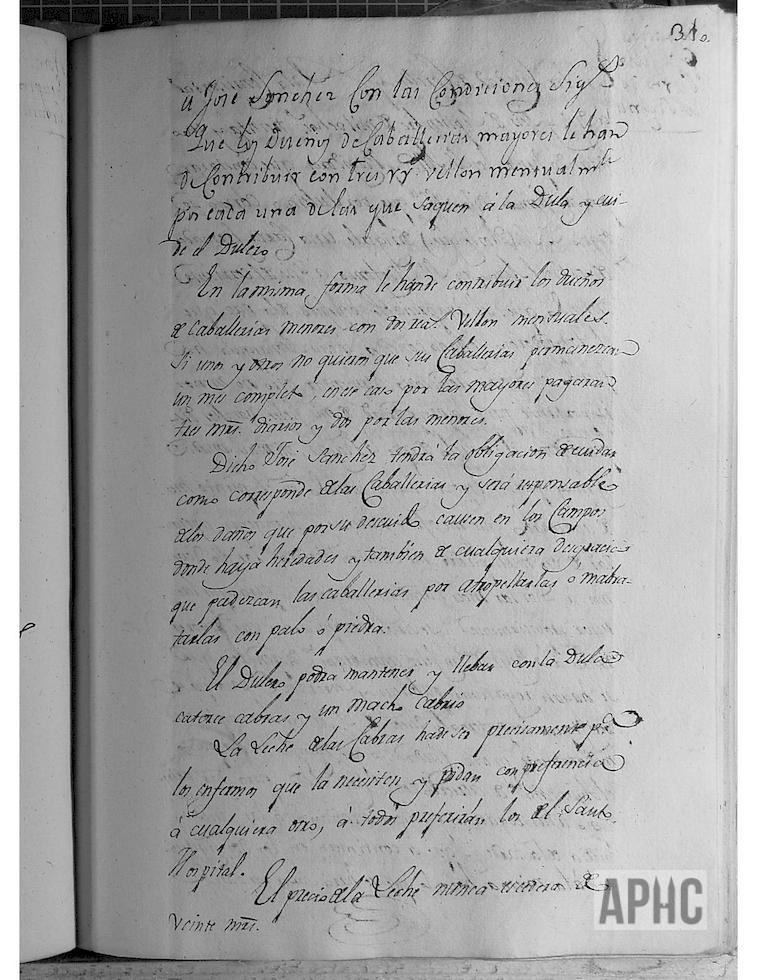 31o.
a José Sanchez Con las Condiciones Sigtes
Que los Dueños de Caballerias mayores le han
de Contribuir con tres rr. vellon mensualmte
por cada una delas que saquen á la Dula y cui-
de el Dulero
En la misma forma le hande contribuir los dueños
de caballerias menores con dos reas. Vellon mensuales.
Si unos y otros no quieren que sus Caballerias permanezcan
un mes completo, en ese caso por las mayores pagaran
tres mrs. diarios y dos por las menores.
Dicho José Sanchez tendrá la obligacion de cuidar
como corresponde delas Caballerias y será responsable
delos daños que por su descuido causen en los Campos
donde haya heredades y tambien de cualquiera desgracia
que padezcan las caballerias por atropellarlas ó maltra-
tarlas con palo ó piedra.
El Dulero podrá mantener y llebar con la Dula
catorce cabras y un macho cabrio
La Leche delas Cabras hade ser precisamente pa.
los enfermos que la necesiten y pidan con preferencia
á cualquiera otro, á todos preferirán los del Santo
Hospital.
El precio dela Leche nunca escedera de
veinte mrs.
APHC